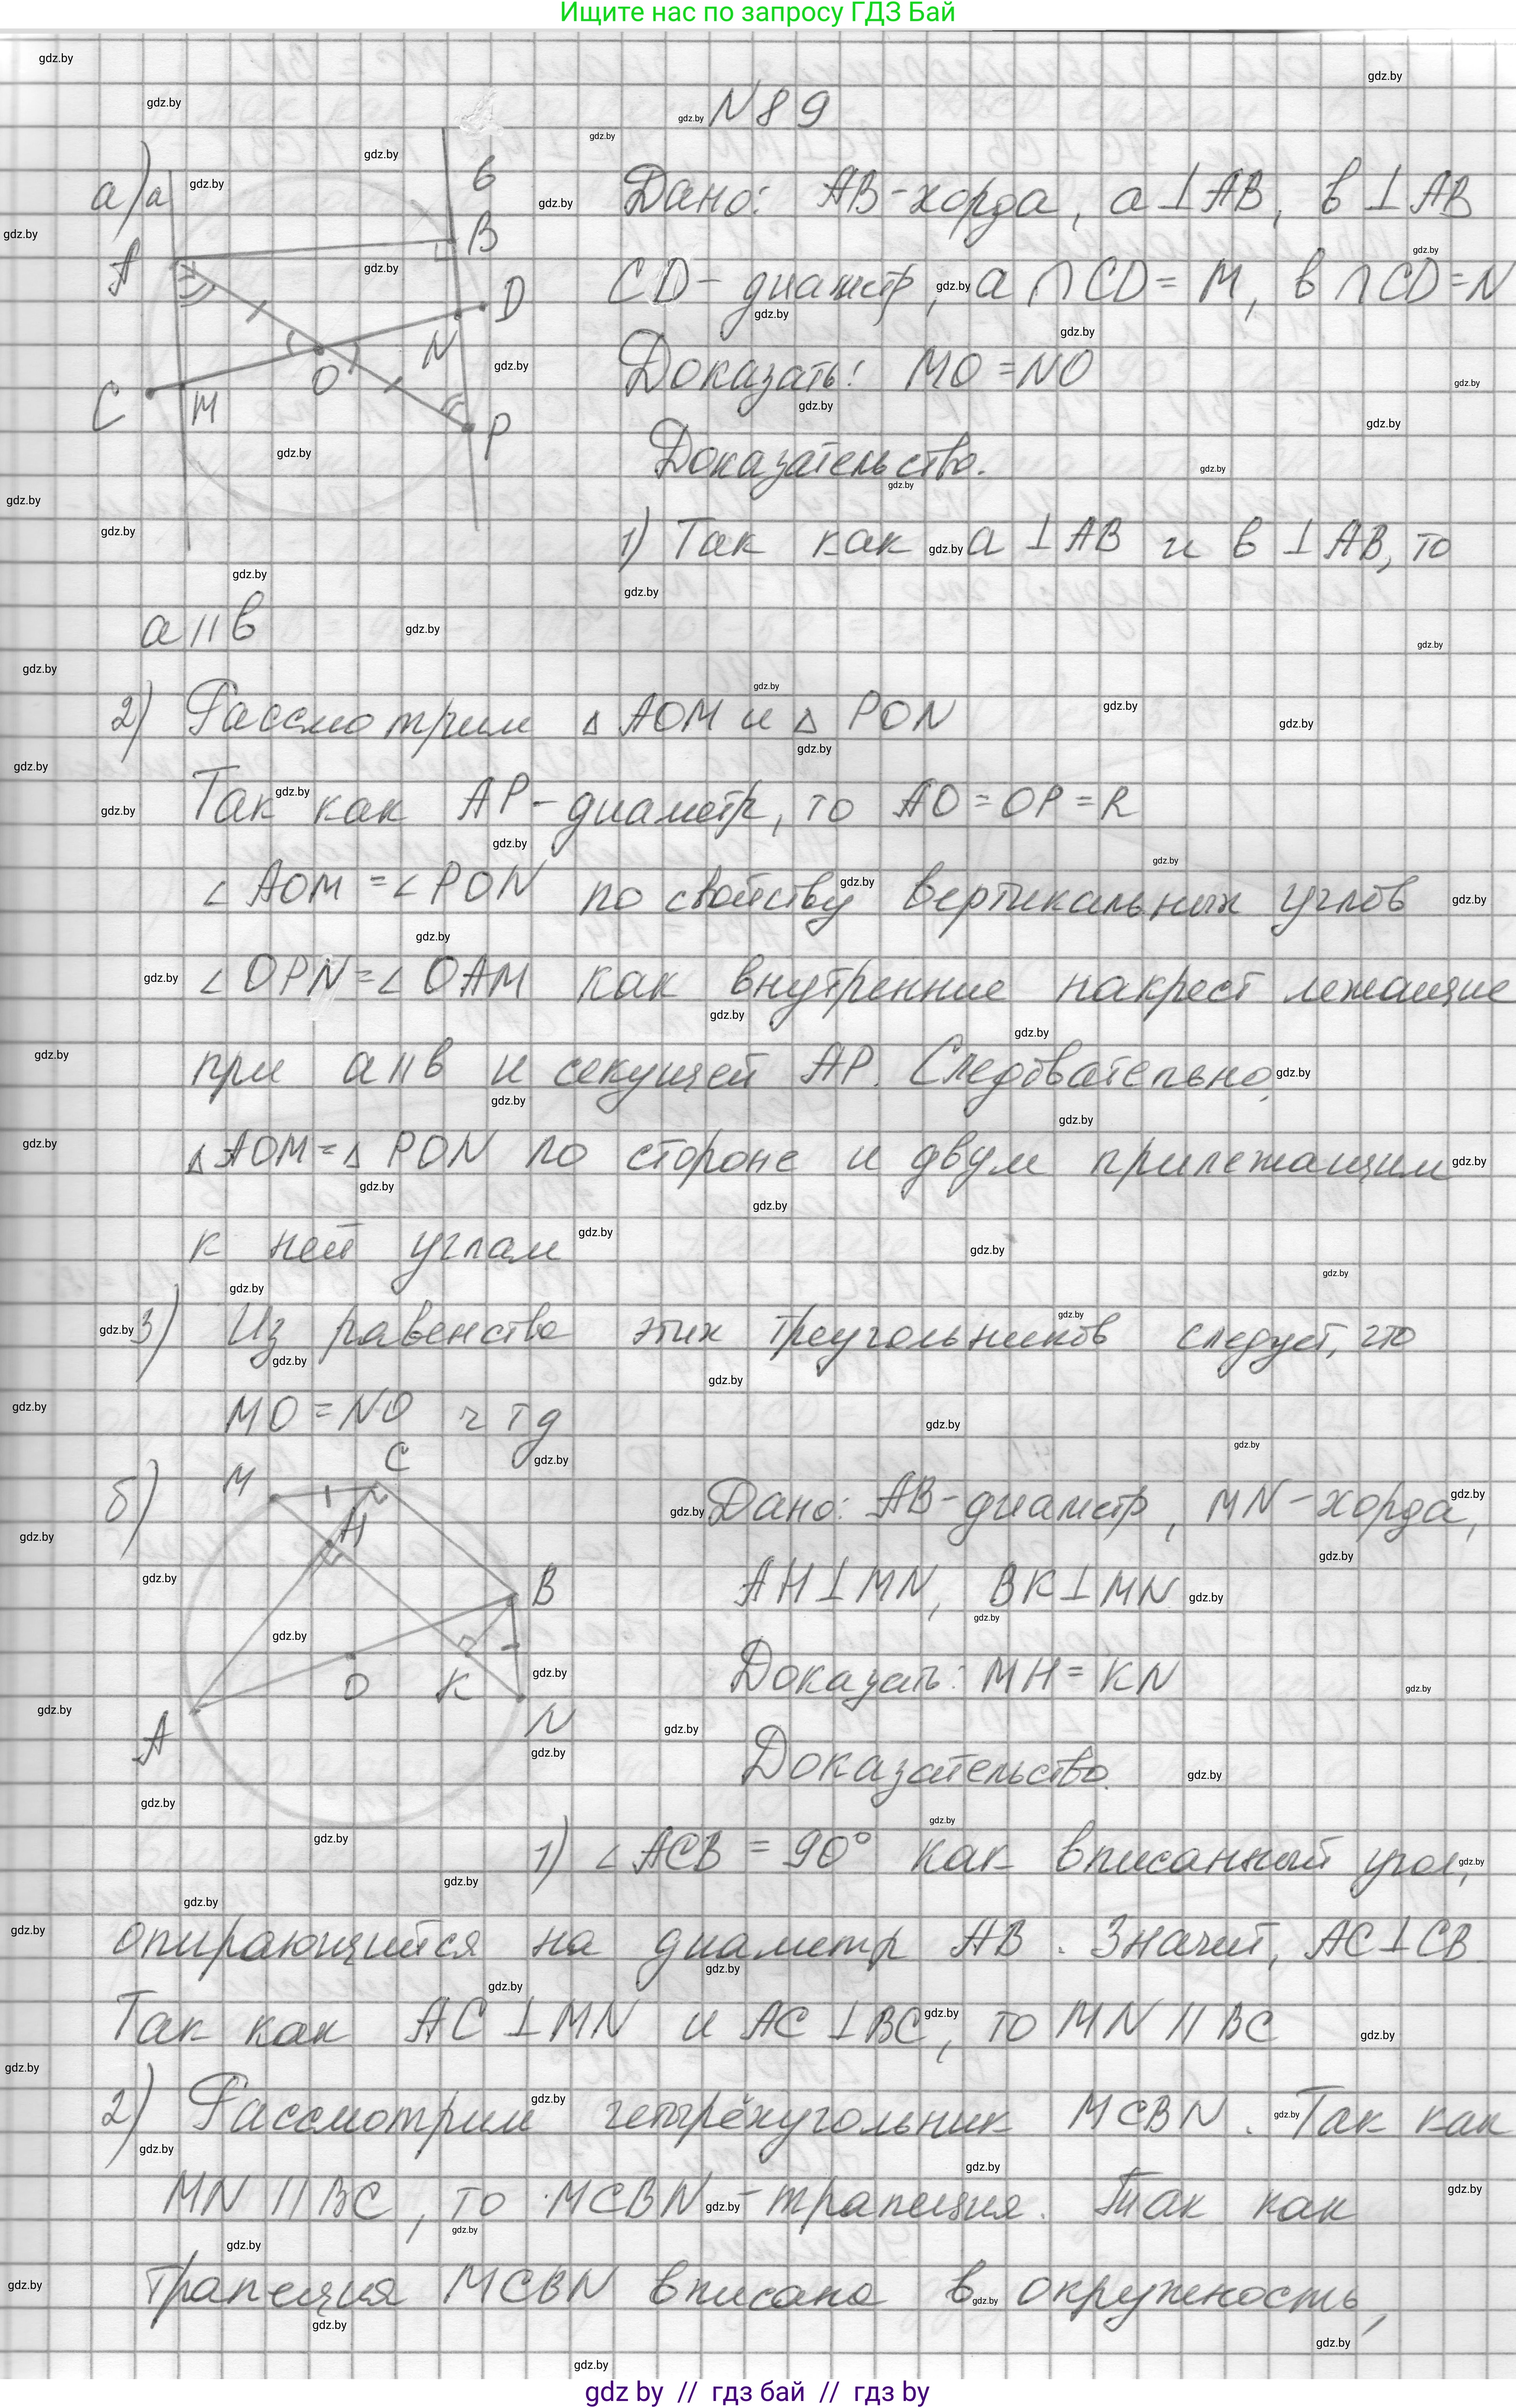 Ищите нас по запросу ГДЗ Бай
N89
а)
Дано: AB-хорда, a⊥AB, в⊥AB
CD- диаметр, a∩CD=M, в∩CD=N
Доказать: MO=NO
Доказательство.
1) Так как a⊥AB и в⊥AB, то
a||в
2) Рассмотрим △AOM и △PON
Так как AP-диаметр, то AO=OP=R
∠AOM=∠PON по свойству вертикальных углов
∠OPN=∠OAM как внутренние накрест лежащие
при a||в и секущей AP. Следовательно,
△AOM=△PON по стороне и двум прилежащим
к ней углам
3) Из равенства этих треугольников следует, что
MO=NO чтд
б)
Дано: AB-диаметр, MN-хорда,
AH⊥MN, BK⊥MN
Доказать: MH=KN
Доказательство.
1) ∠ACB=90° как вписанный угол,
опирающийся на диаметр AB. Значит, AC⊥CB.
Так как AC⊥MN и AC⊥BC, то MN||BC
2) Рассмотрим четырёхугольник MCBN. Так как
MN||BC, то MCBN-трапеция. Так как
трапеция MCBN вписана в окружность,
gdz by // гдз бай // гдз by